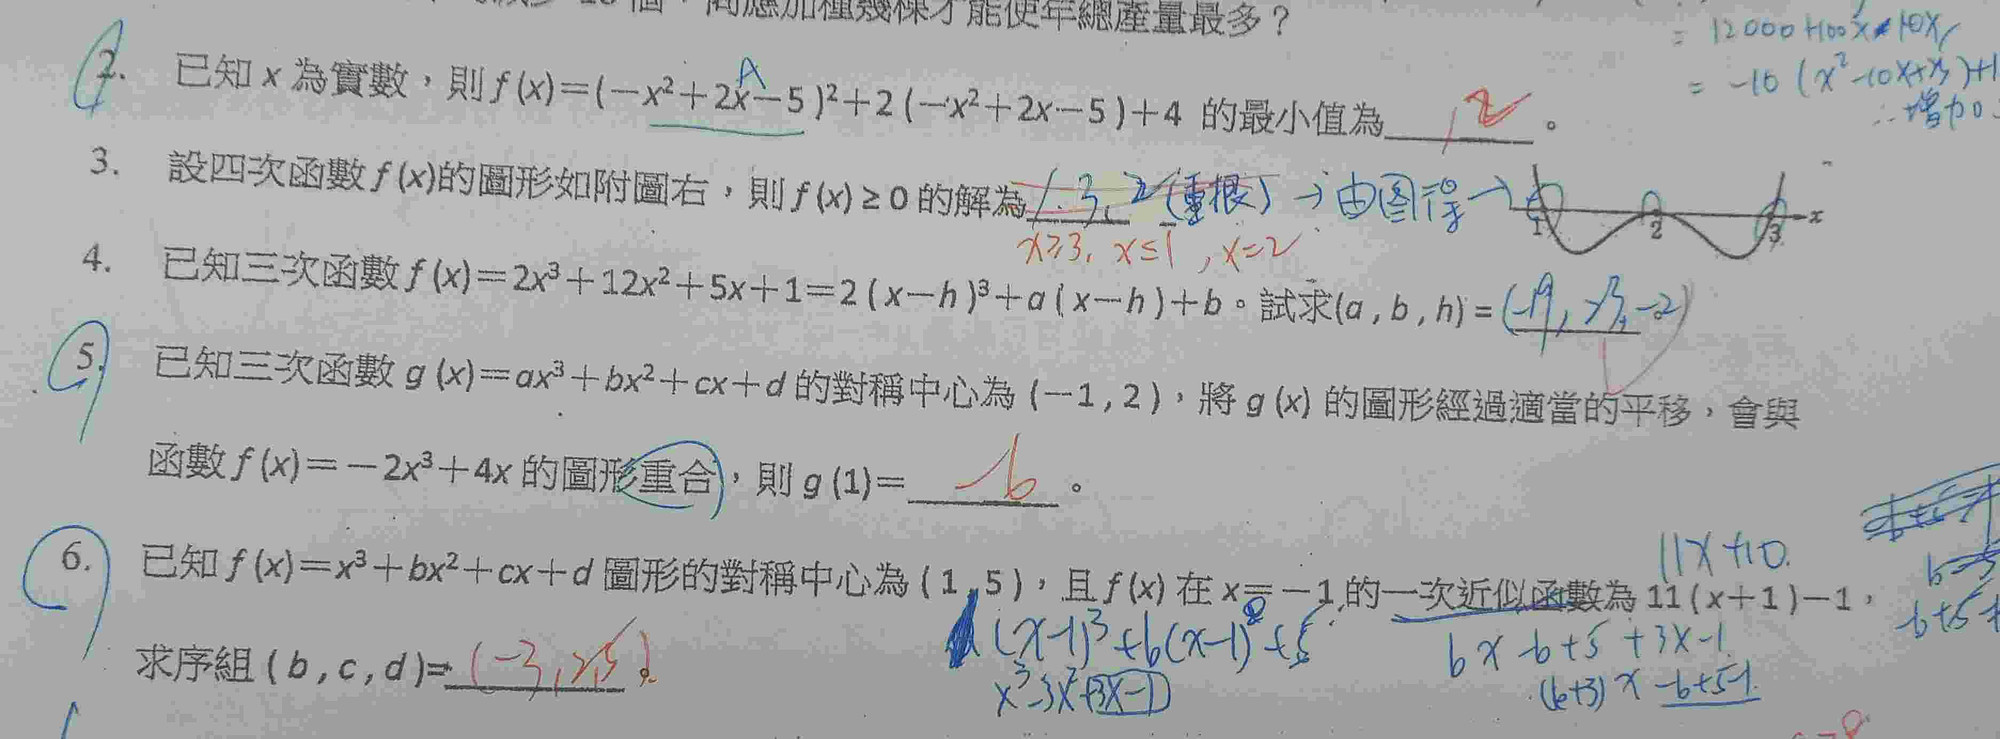 、何應加種幾棵才能使年總產量最多？
= 12000+100x-10x
= -10(x²-10x+
∴增加
2. 已知 x 為實數，則 f(x)=(-x²+2x-5)²+2(-x²+2x-5)+4 的最小值為____。
A
3. 設四次函數 f(x)的圖形如附圖右，則 f(x)≥0 的解為 1.3, 2(重根)→由图得→ 1 2 3 x
x≥3, x≤1, x=2
4. 已知三次函數 f(x)=2x³+12x²+5x+1=2(x-h)³+a(x-h)+b。試求(a,b,h)=(-19, , -2)
5. 已知三次函數 g(x)=ax³+bx²+cx+d 的對稱中心為 (-1,2)，將 g(x) 的圖形經過適當的平移，會與
函數 f(x)=-2x³+4x 的圖形重合，則 g(1)= -6。
11x+10.
6. 已知 f(x)=x³+bx²+cx+d 圖形的對稱中心為 (1,5)，且 f(x) 在 x=-1 的一次近似函數為 11(x+1)-1，
(x-1)³+b(x-1)+5
bx-b+5+3x-1
求序組 (b,c,d)=(-3,2,5)。
x³-3x²+3x-1
(b+3)x-b+5-1